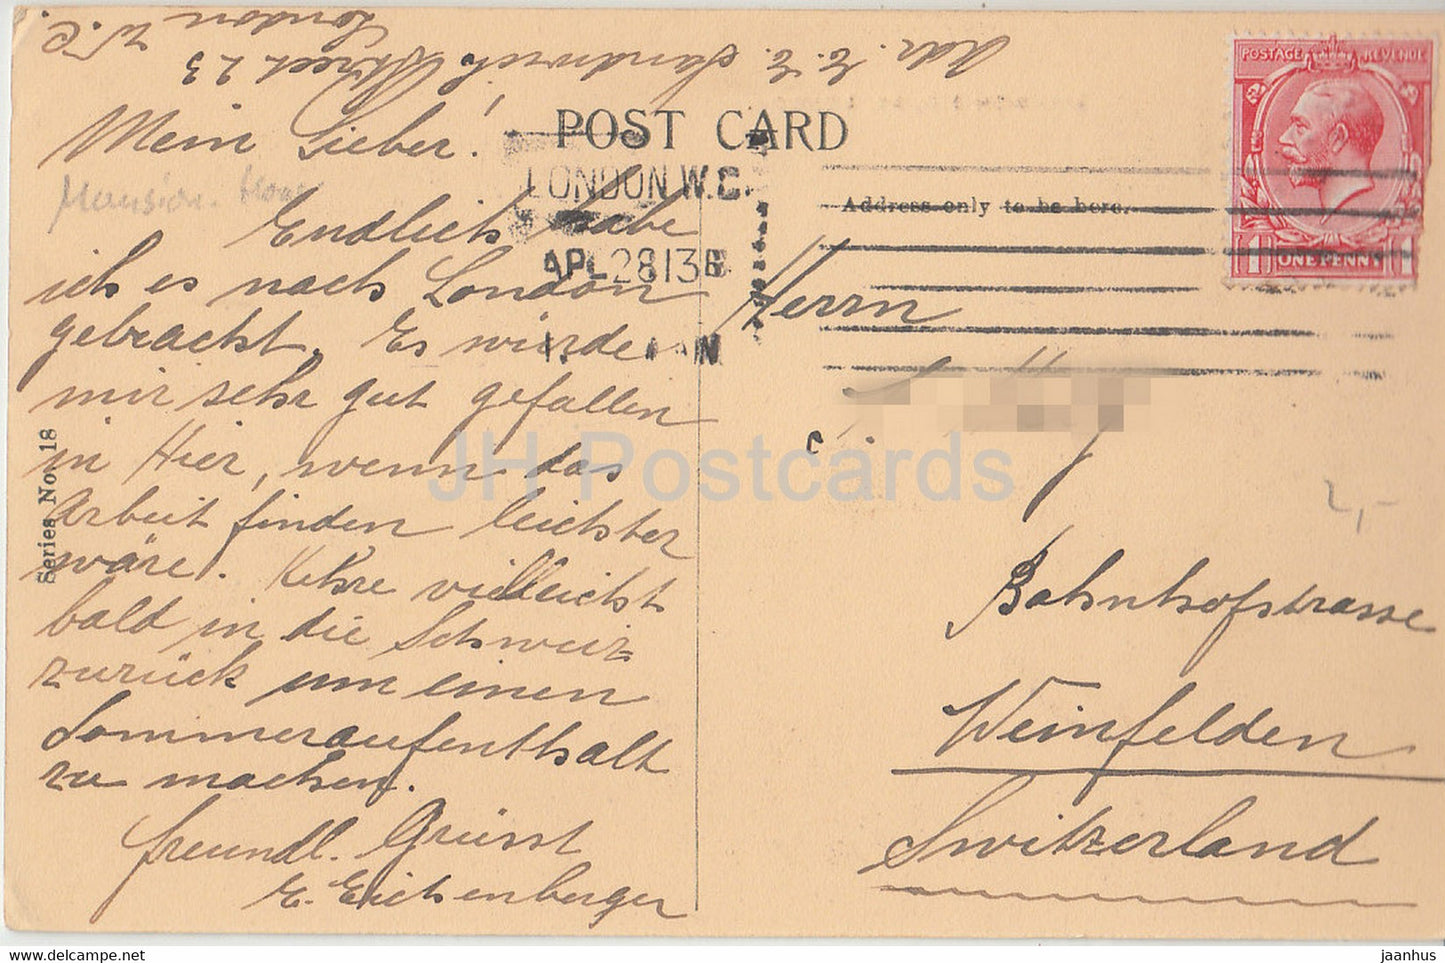 Adr. E. E. Sandwich Street 23
London W.C.
POST CARD
Mein Lieber!
Mansion House
LONDON. W.C.
APL 28 13
POSTAGE REVENUE
1 ONE PENNY 1
Address only to be here.
Endlich habe
ich es nach London
gebracht. Es würde
mir sehr gut gefallen
in Hier, wenn das
Arbeit finden leichter
wäre. Kehre vielleicht
bald in die Schweiz
zurück um einen
Sommeraufenthalt
zu machen.
freundl. Grüsst
E. Eichenberger
Series No. 18
Herrn
Bahnhofstrasse
Weinfelden
Switzerland
2,-
JH Postcards
www.hipPostcard.com
jaanhus